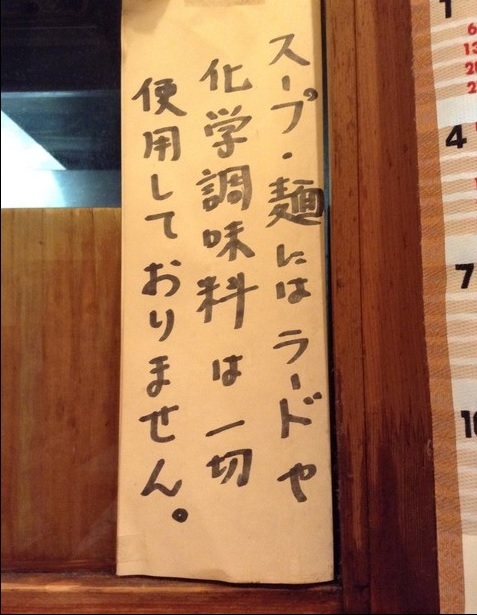 スープ・麺にはラードや
化学調味料は一切
使用しておりません。
1
4
7